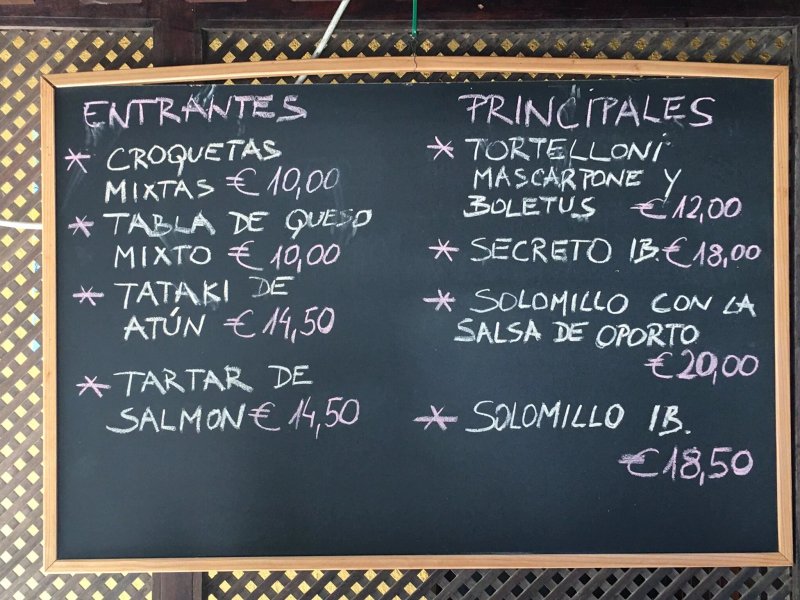 ENTRANTES
* CROQUETAS
MIXTAS € 10,00
* TABLA DE QUESO
MIXTO € 10,00
* TATAKI DE
ATÚN € 14,50
* TARTAR DE
SALMON € 14,50
PRINCIPALES
* TORTELLONI
MASCARPONE Y
BOLETUS € 12,00
* SECRETO IB. € 18,00
* SOLOMILLO CON LA
SALSA DE OPORTO
€ 20,00
* SOLOMILLO IB.
€ 18,50